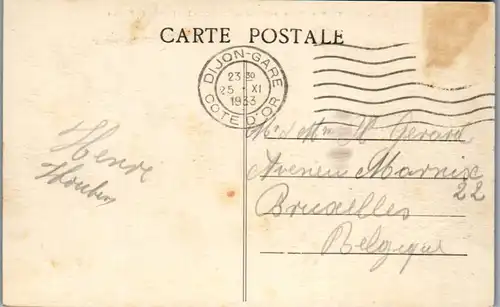 CARTE POSTALE
DIJON-GARE
23 30
25 - XI
1933
COTE D'OR
Mr & Mme Gerard
Avenue Marnix
22
Bruxelles
Belgique
Henri